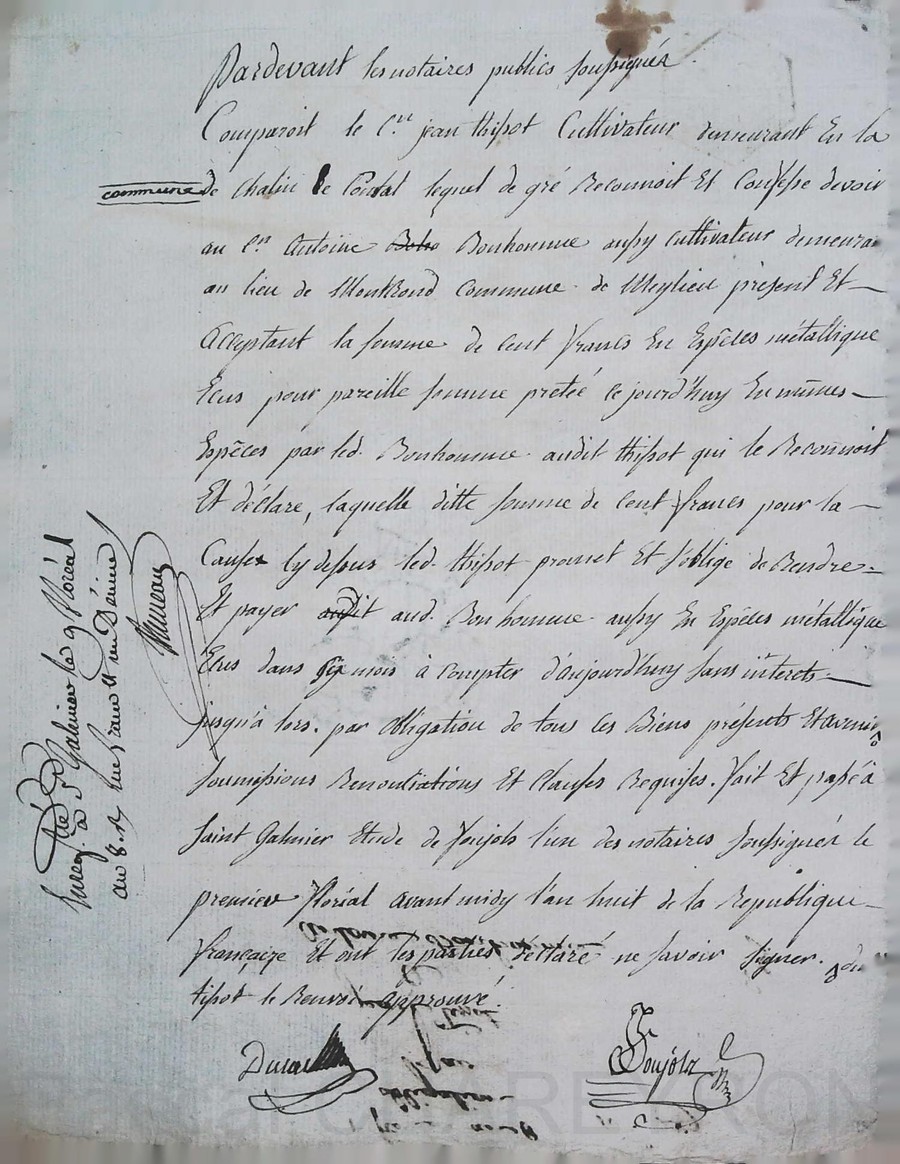 Pardevant les notaires publics soussignés
Comparoit le C.en jean thisot Cultivateur demeurant En la
commune de Chalin le Comtal lequel de gré Reconnoit Et Confesse devoir
au C.en Antoine Bonhomme aussy Cultivateur demeurant
au lieu de Montrond Commune de Meylieu présent Et
Acceptant la somme de Cent francs En Espèces métallique
Ecus pour pareille somme pretée Ce jourd'huy En mêmes
Espèces par led. Bonhomme audit thisot qui le Reconnoit
Et déclare, laquelle ditte somme de Cent francs pour la
Causes Cy dessus led. thisot promet Et s'oblige de Rendre
Et payer audit aud. Bonhomme aussy En Espèces métallique
Ecus dans six mois à Compter d'aujourd'huy sans intérets
jusqu'à lors. par obligation de tous ses Biens présents Et avenir
soumissions Renontiations Et Clauses Requises. fait Et passé à
Saint Galmier Etude de Soujols l'un des notaires soussignés le
premier floréal avant midy l'an huit de la Republique
française Et ont les parties déclaré ne savoir signer. du
tisot le Renvoi approuvé.
Soujols
Enreg.tré à S.t Galmier le 9 floréal
an 8. R. un franc